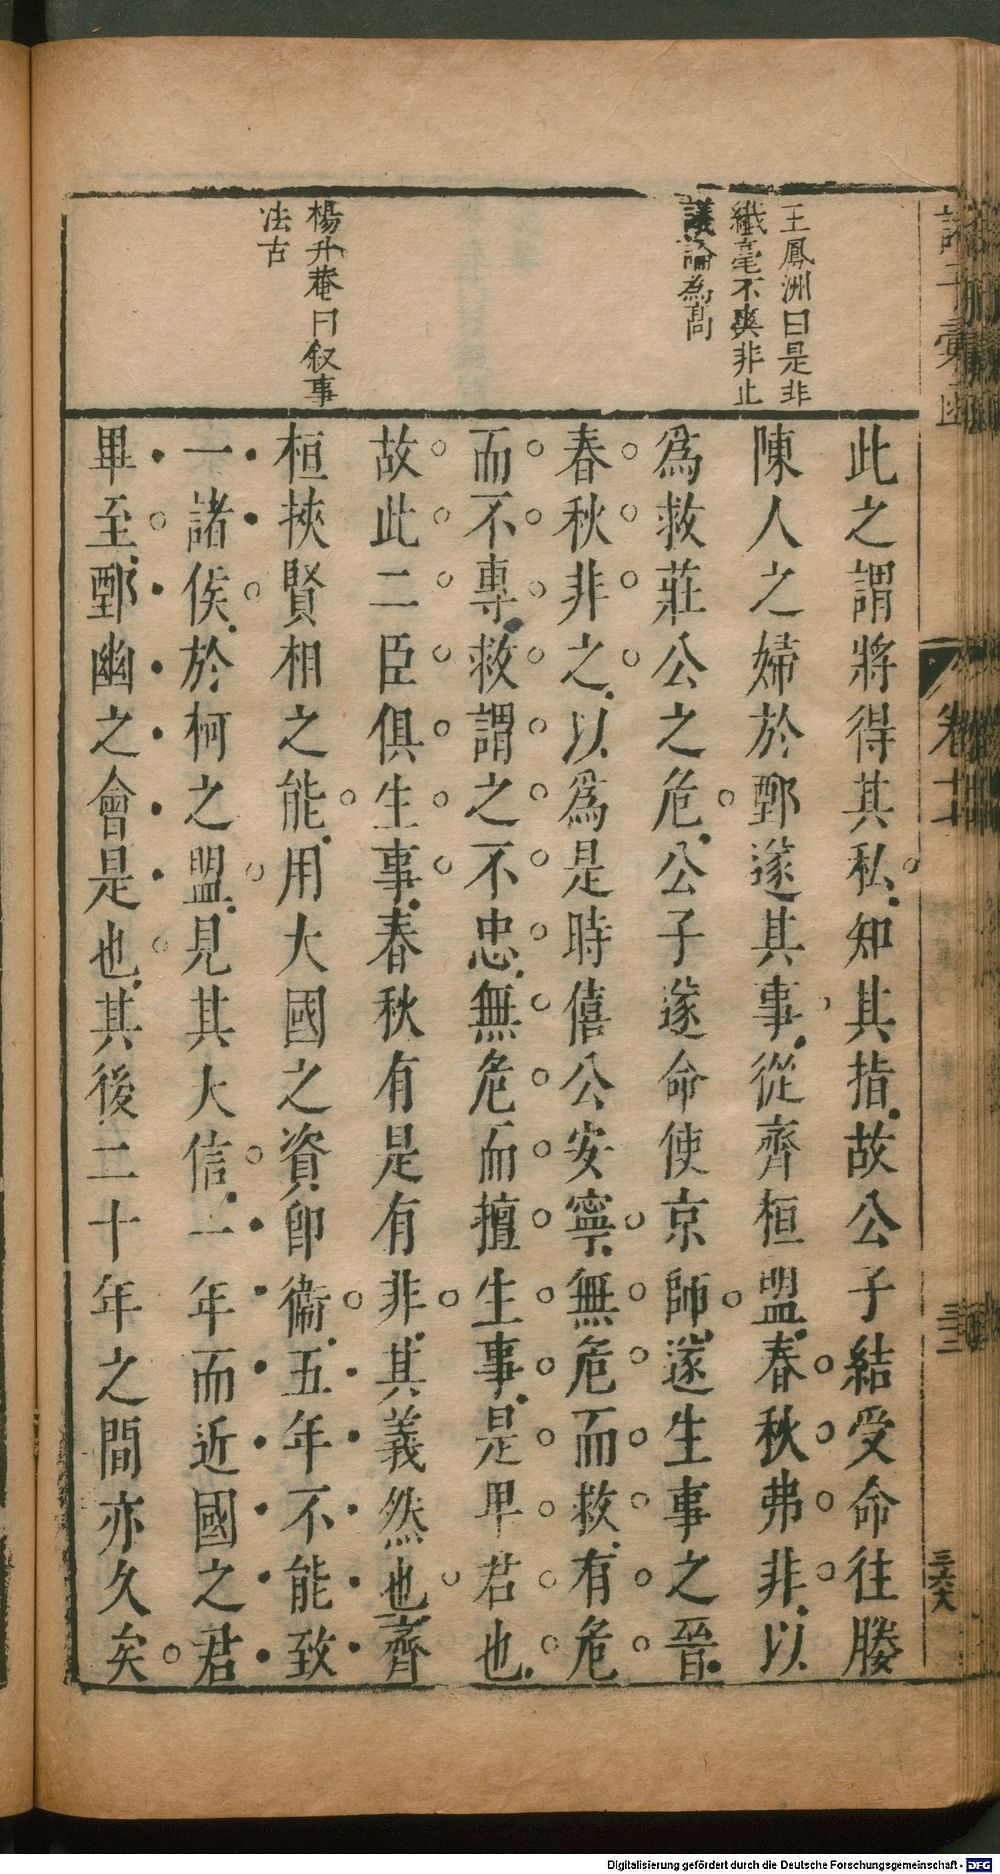 王鳳洲曰是非
纎毫不爽非止
議論為高
楊升菴曰叙事
法古
此之謂將得其私知其指故公子結受命往媵
陳人之婦於鄄遂其事從齊桓盟春秋弗非以
爲救莊公之危公子遂命使京師遂生事之晉
春秋非之以爲是時僖公安寧無危而救有危
而不專救謂之不忠無危而擅生事是卑君也
故此二臣俱生事春秋有是有非其義然也齊
桓挾賢相之能用大國之資卽衞五年不能致
一諸侯於柯之盟見其大信一年而近國之君
畢至鄄幽之會是也其後二十年之間亦久矣
卷十七
三六八
Digitalisierung gefördert durch die Deutsche Forschungsgemeinschaft - DFG